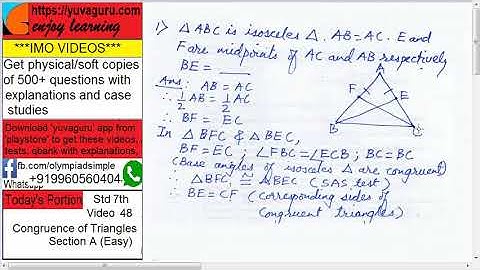 https://yuvaguru.com
enjoy learning
***IMO VIDEOS***
Get physical/soft copies
of 500+ questions with
explanations and case
studies
Download 'yuvaguru' app from
'playstore' to get these videos,
tests, qbank with explanations,
fb.com/olympiadsimple
Whatsapp
+919960560404
Today's Portion
Std 7th
Video 48
Congruence of Triangles
Section A (Easy)
1) △ ABC is isosceles △. AB=AC. E and
F are midpoints of AC and AB respectively
BE = ___
Ans: AB = AC
∴ 1/2 AB = 1/2 AC
∴ BF = EC
In △ BFC & △ BEC,
BF = EC ; ∠FBC = ∠ECB ; BC = BC
(Base angles of isosceles △ are congruent)
∴ △BFC ≅ △BEC (SAS test)
∴ BE = CF (corresponding sides of
congruent triangles)
A
F
E
B
C